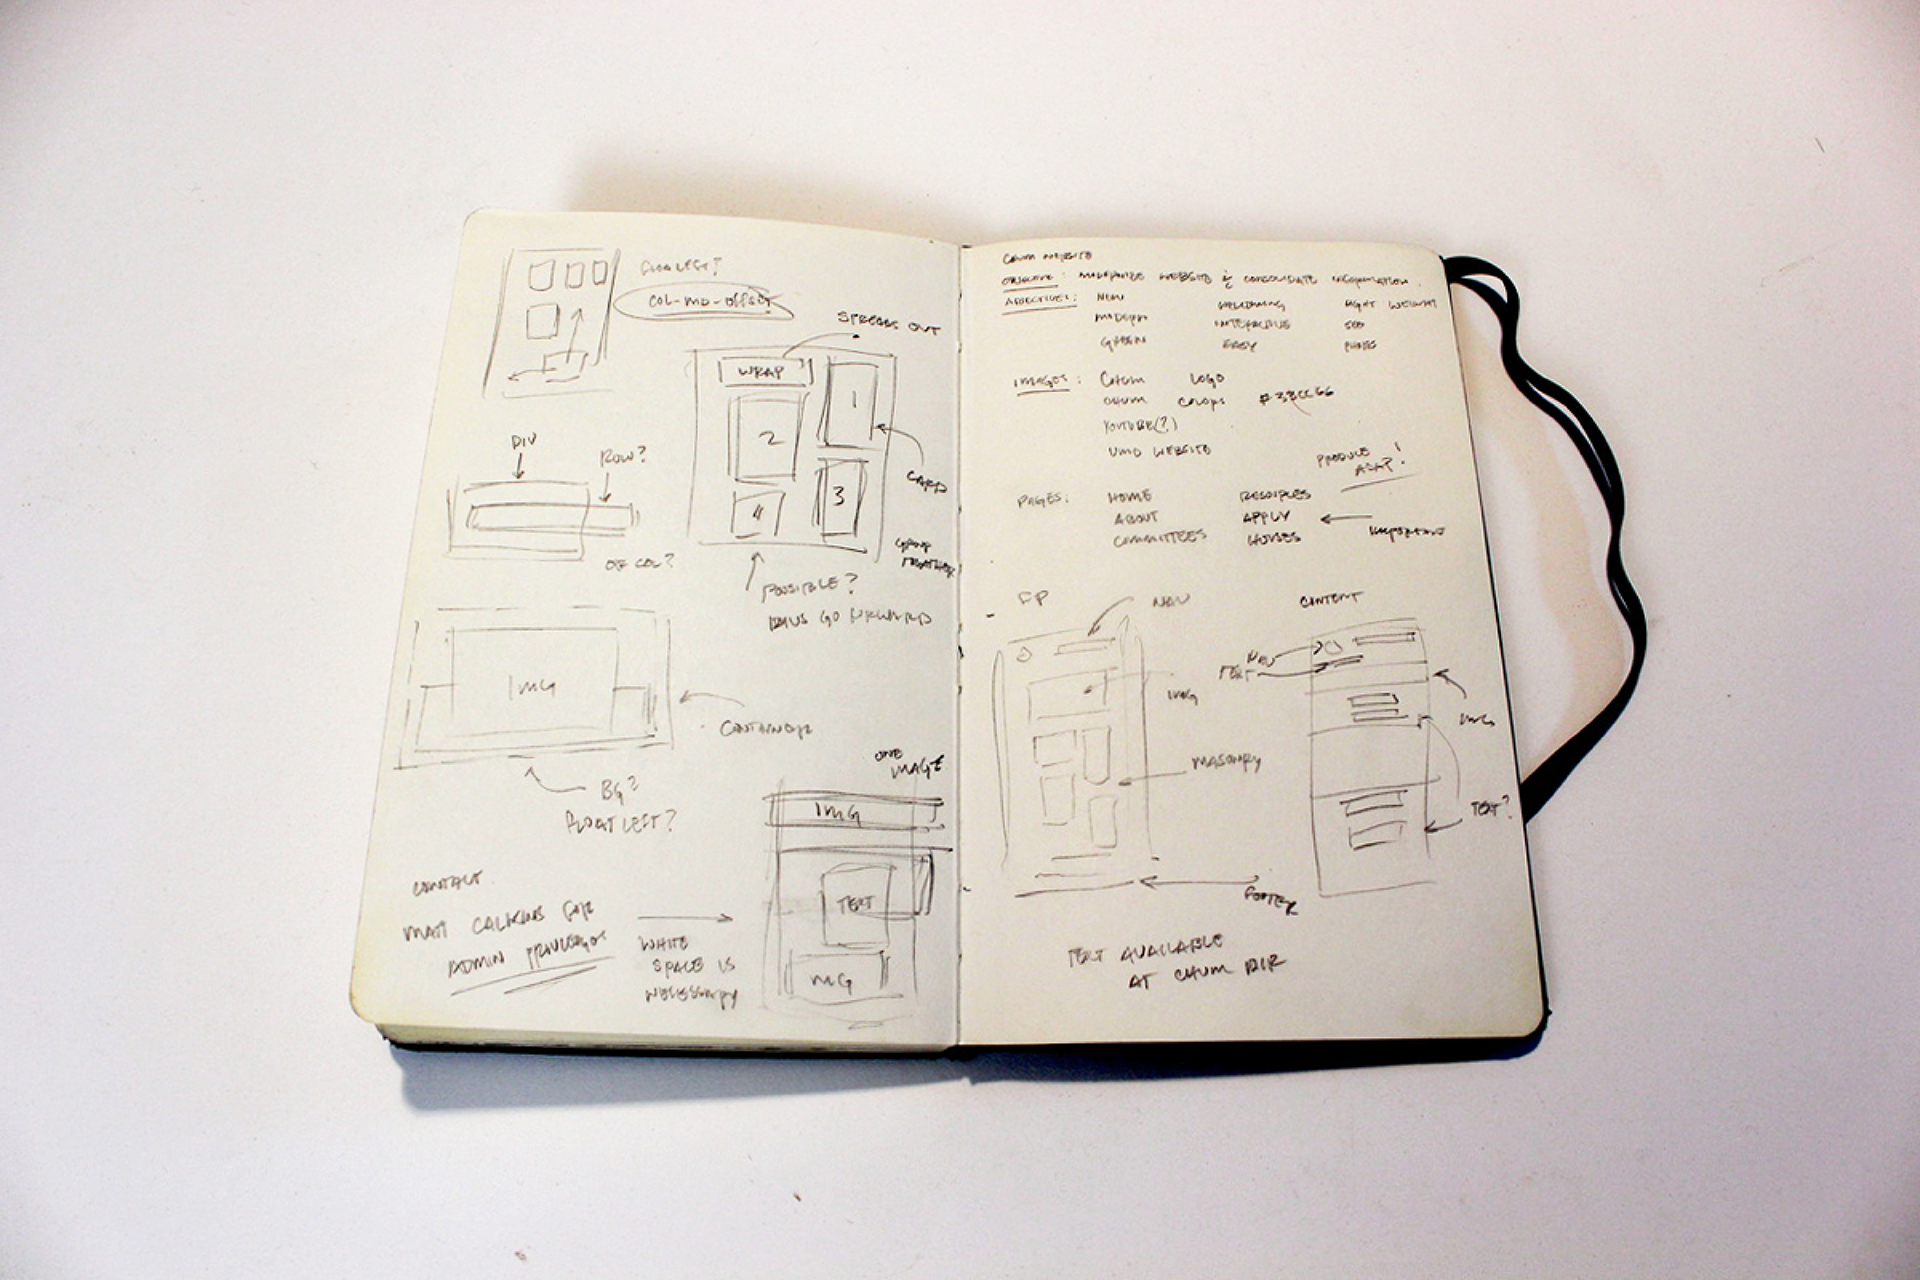 FLOAT LEFT?
COL-MD-OFFSET
STREAMS OUT
WRAP
1
2
3
4
CARD
DIV
ROW?
OR COL?
GROUP
TOGETHER
POSSIBLE?
DIVS GO FORWARD
IMG
CONTAINER
BG?
FLOAT LEFT?
ONE
IMAGE
IMG
TEXT
IMG
CONTACT
MATT CALKINS FOR
ADMIN PRIVILEGES
WHITE
SPACE IS
NECESSARY
CHUM WEBSITE
OBJECTIVE: MODERNIZE WEBSITE & CONSOLIDATE INFORMATION.
ADJECTIVES: NEW WELCOMING LIGHT WEIGHT
MODERN INTERACTIVE SEO
GREEN EASY PHOTOS
IMAGES: CHUM LOGO
CHUM COLORS #33CC66
YOUTUBE(?)
UMD WEBSITE
PRODUCE
ASAP!
PAGES: HOME RESOURCES
ABOUT APPLY IMPORTANT
COMMITTEES HOUSES
FP NAV CONTENT
NAV
TEXT
IMG
IMG
MASONRY
TEXT?
FOOTER
TEXT AVAILABLE
AT CHUM DIR